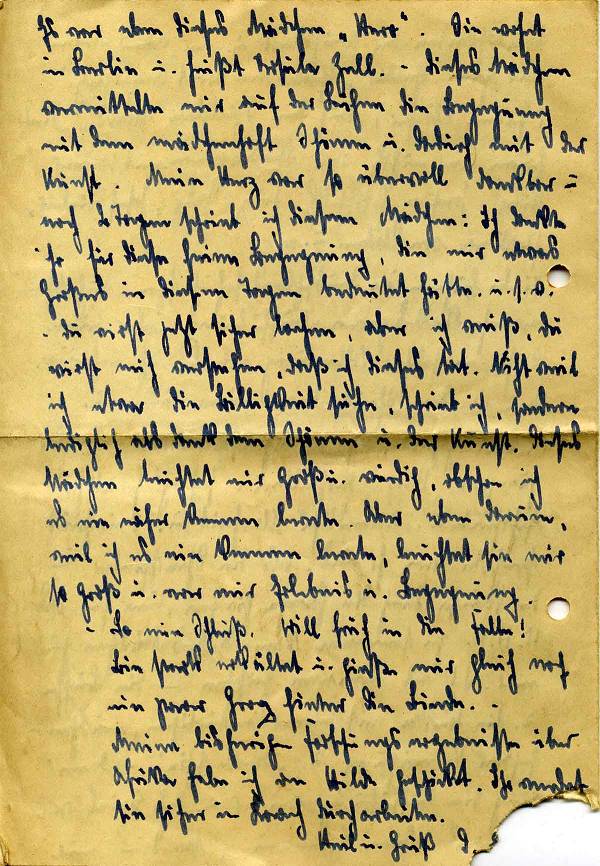 Es war eben dieses Mädchen „Herz“. Sie wohnt
in Berlin u. heißt Ursula Zell. - Dieses Mädchen
vermittelte mir auf der Bühne die Begegnung
mit dem mädchenhaft Schönen u. dadurch mit der
Kunst. Mein Herz war so übervoll dankbar -
nach 2 Tagen schrieb ich diesem Mädchen: Ich dankte
ihr für diese feine Begegnung, die mir etwas
Großes in diesen Tagen bedeutet hätte. u. s. w.
- du wirst jetzt sicher lachen, aber ich weiß, du
wirst mich verstehen, daß ich dieses tat. Nicht weil
ich etwa die Billigkeit suche, schrieb ich, sondern
lediglich als Dank dem Schönen u. der Kunst. Dieses
Mädchen leuchtet mir groß u. würdig, obschon ich
es nie näher kennen lernte. Aber eben darum,
weil ich es nie kennen lernte, leuchtet sie mir
so groß u. war mir Erlebnis u. Begegnung.
- So nun Schluß. Will früh in die Falle!
Bin stark erkältet u. gieße mir gleich noch
ein paar Grog hinter die Binde. -
Meine bisherigen Forschungsergebnisse über
Afrika habe ich an Hilde geschickt. Ihr werdet
sie sicher in durcharbeiten.
Heil u. Gruß